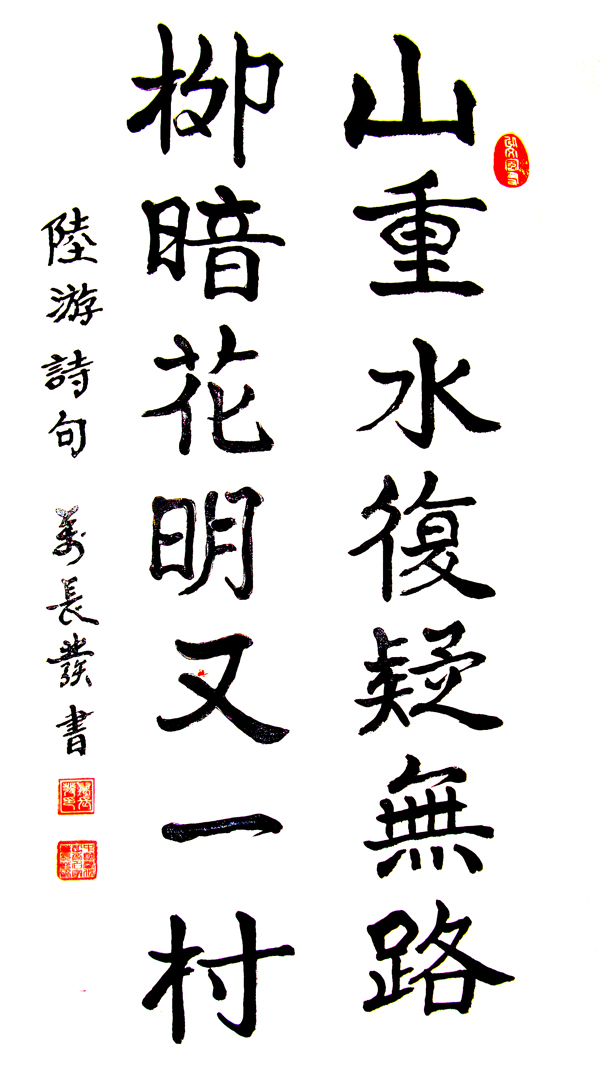 山重水復疑無路
柳暗花明又一村
陸游詩句 萬長發書